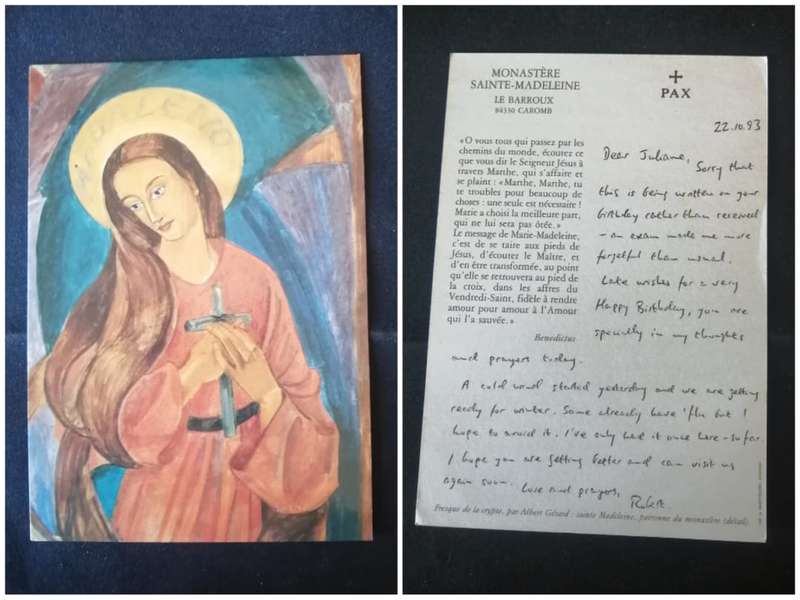 MONASTÈRE
SAINTE-MADELEINE
LE BARROUX
84330 CAROMB
PAX
22.10.93
«O vous tous qui passez par les
chemins du monde, écoutez ce
que vous dit le Seigneur Jésus à
travers Marthe, qui s'affaire et
se plaint : «Marthe, Marthe, tu
te troubles pour beaucoup de
choses : une seule est nécessaire !
Marie a choisi la meilleure part,
qui ne lui sera pas ôtée.»
Le message de Marie-Madeleine,
c'est de se taire aux pieds de
Jésus, d'écouter le Maître, et
d'en être transformée, au point
qu'elle se retrouvera au pied de
la croix, dans les affres du
Vendredi-Saint, fidèle à rendre
amour pour amour à l'Amour
qui l'a sauvée.»
Benedictus
Dear Juliane,
Sorry that
this is being written on your
birthday rather than received
- an exam made me more
forgetful than usual.
Late wishes for a very
Happy Birthday, you are
specially in my thoughts
and prayers today.
A cold wind started yesterday and we are getting
ready for winter. Some already have 'flu but I
hope to avoid it. I've only had it once here - so far.
I hope you are getting better and can visit us
again soon. Love and prayers,
Fresque de la crypte, par Albert Gérard : sainte Madeleine, patronne du monastère (détail).